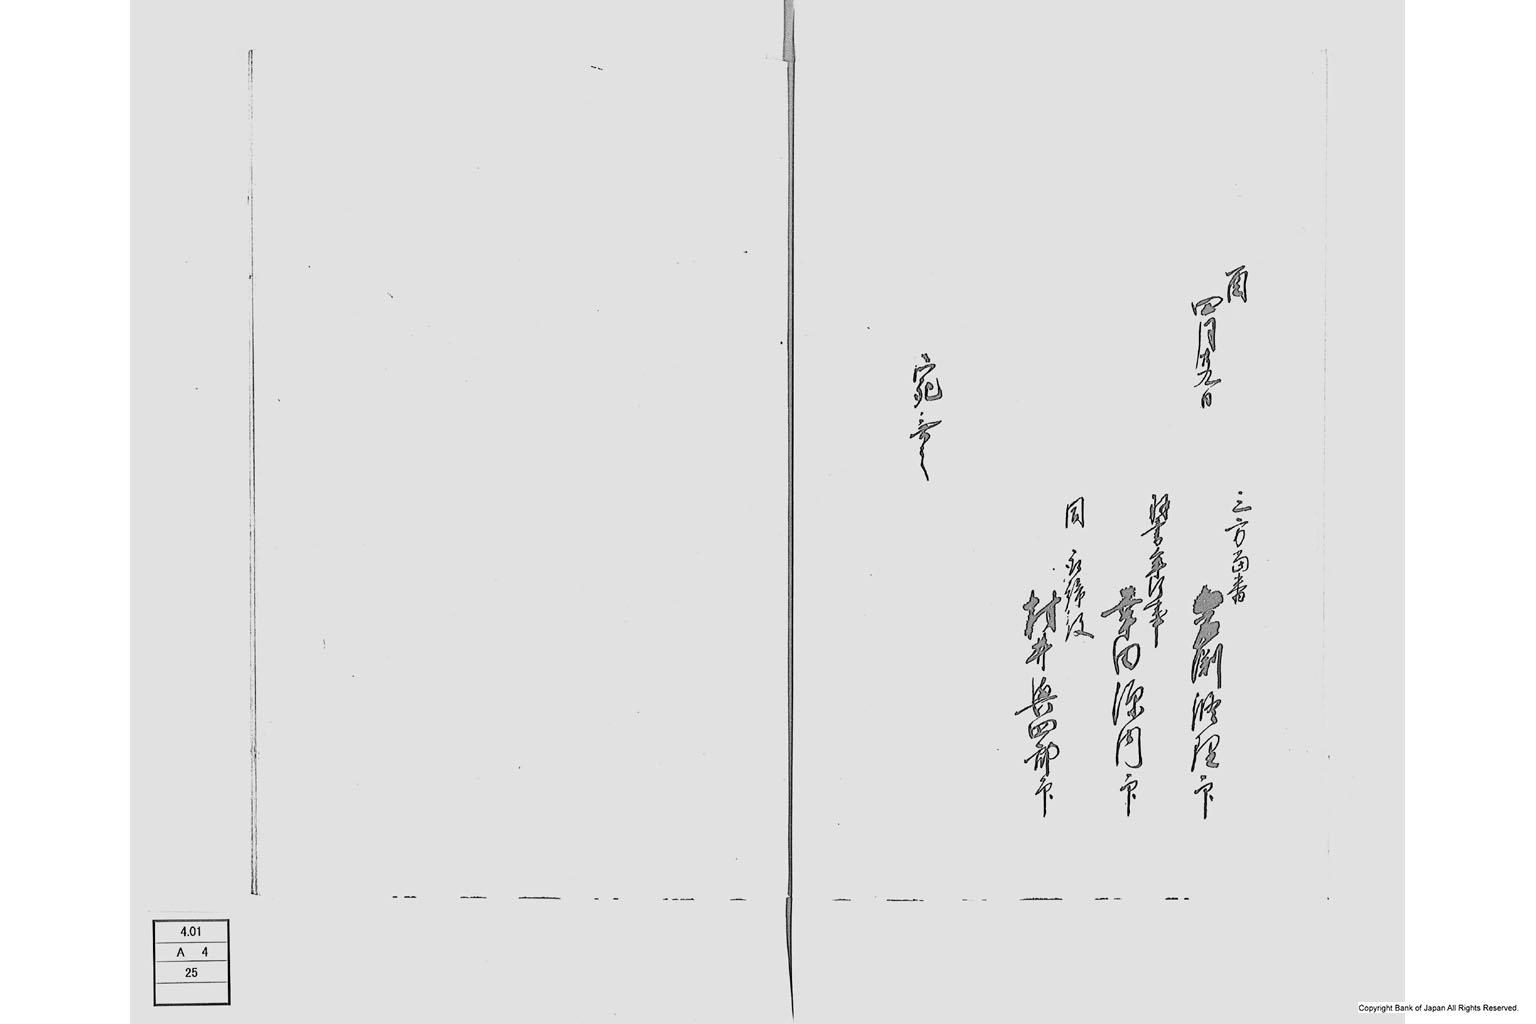 酉
四月廿九日
三方
岩渕修理印
年行事
葉田源門印
同 取締役
村井与四郎印
宛無之
4.01
A 4
25
Copyright Bank of Japan All Rights Reserved.